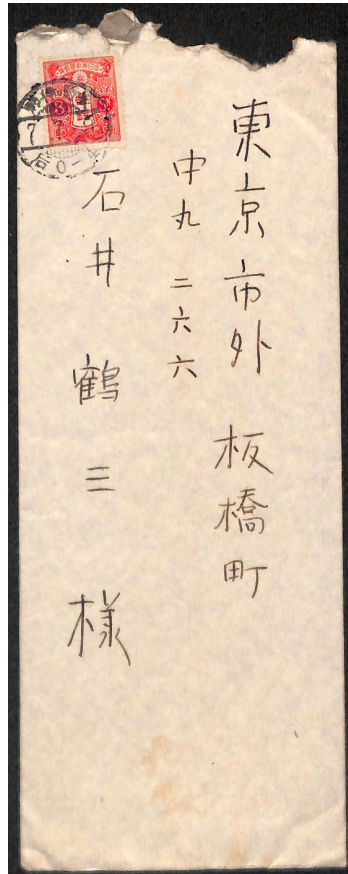 東京市外 板橋町
中丸 二六六
石井 鶴三 様